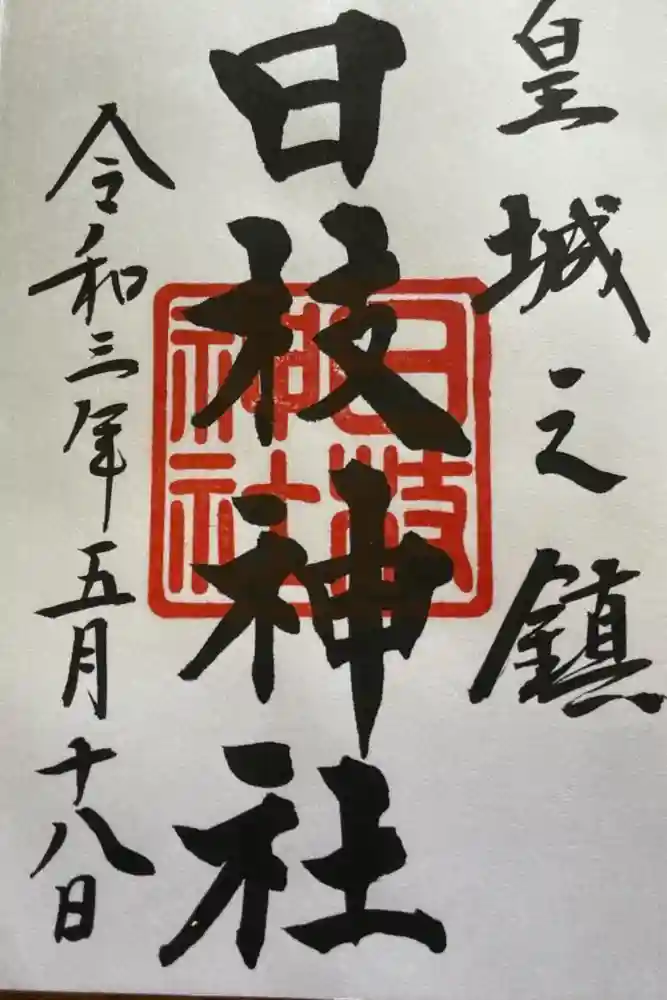 皇城之鎮
日枝神社
日枝神社
令和三年五月十八日